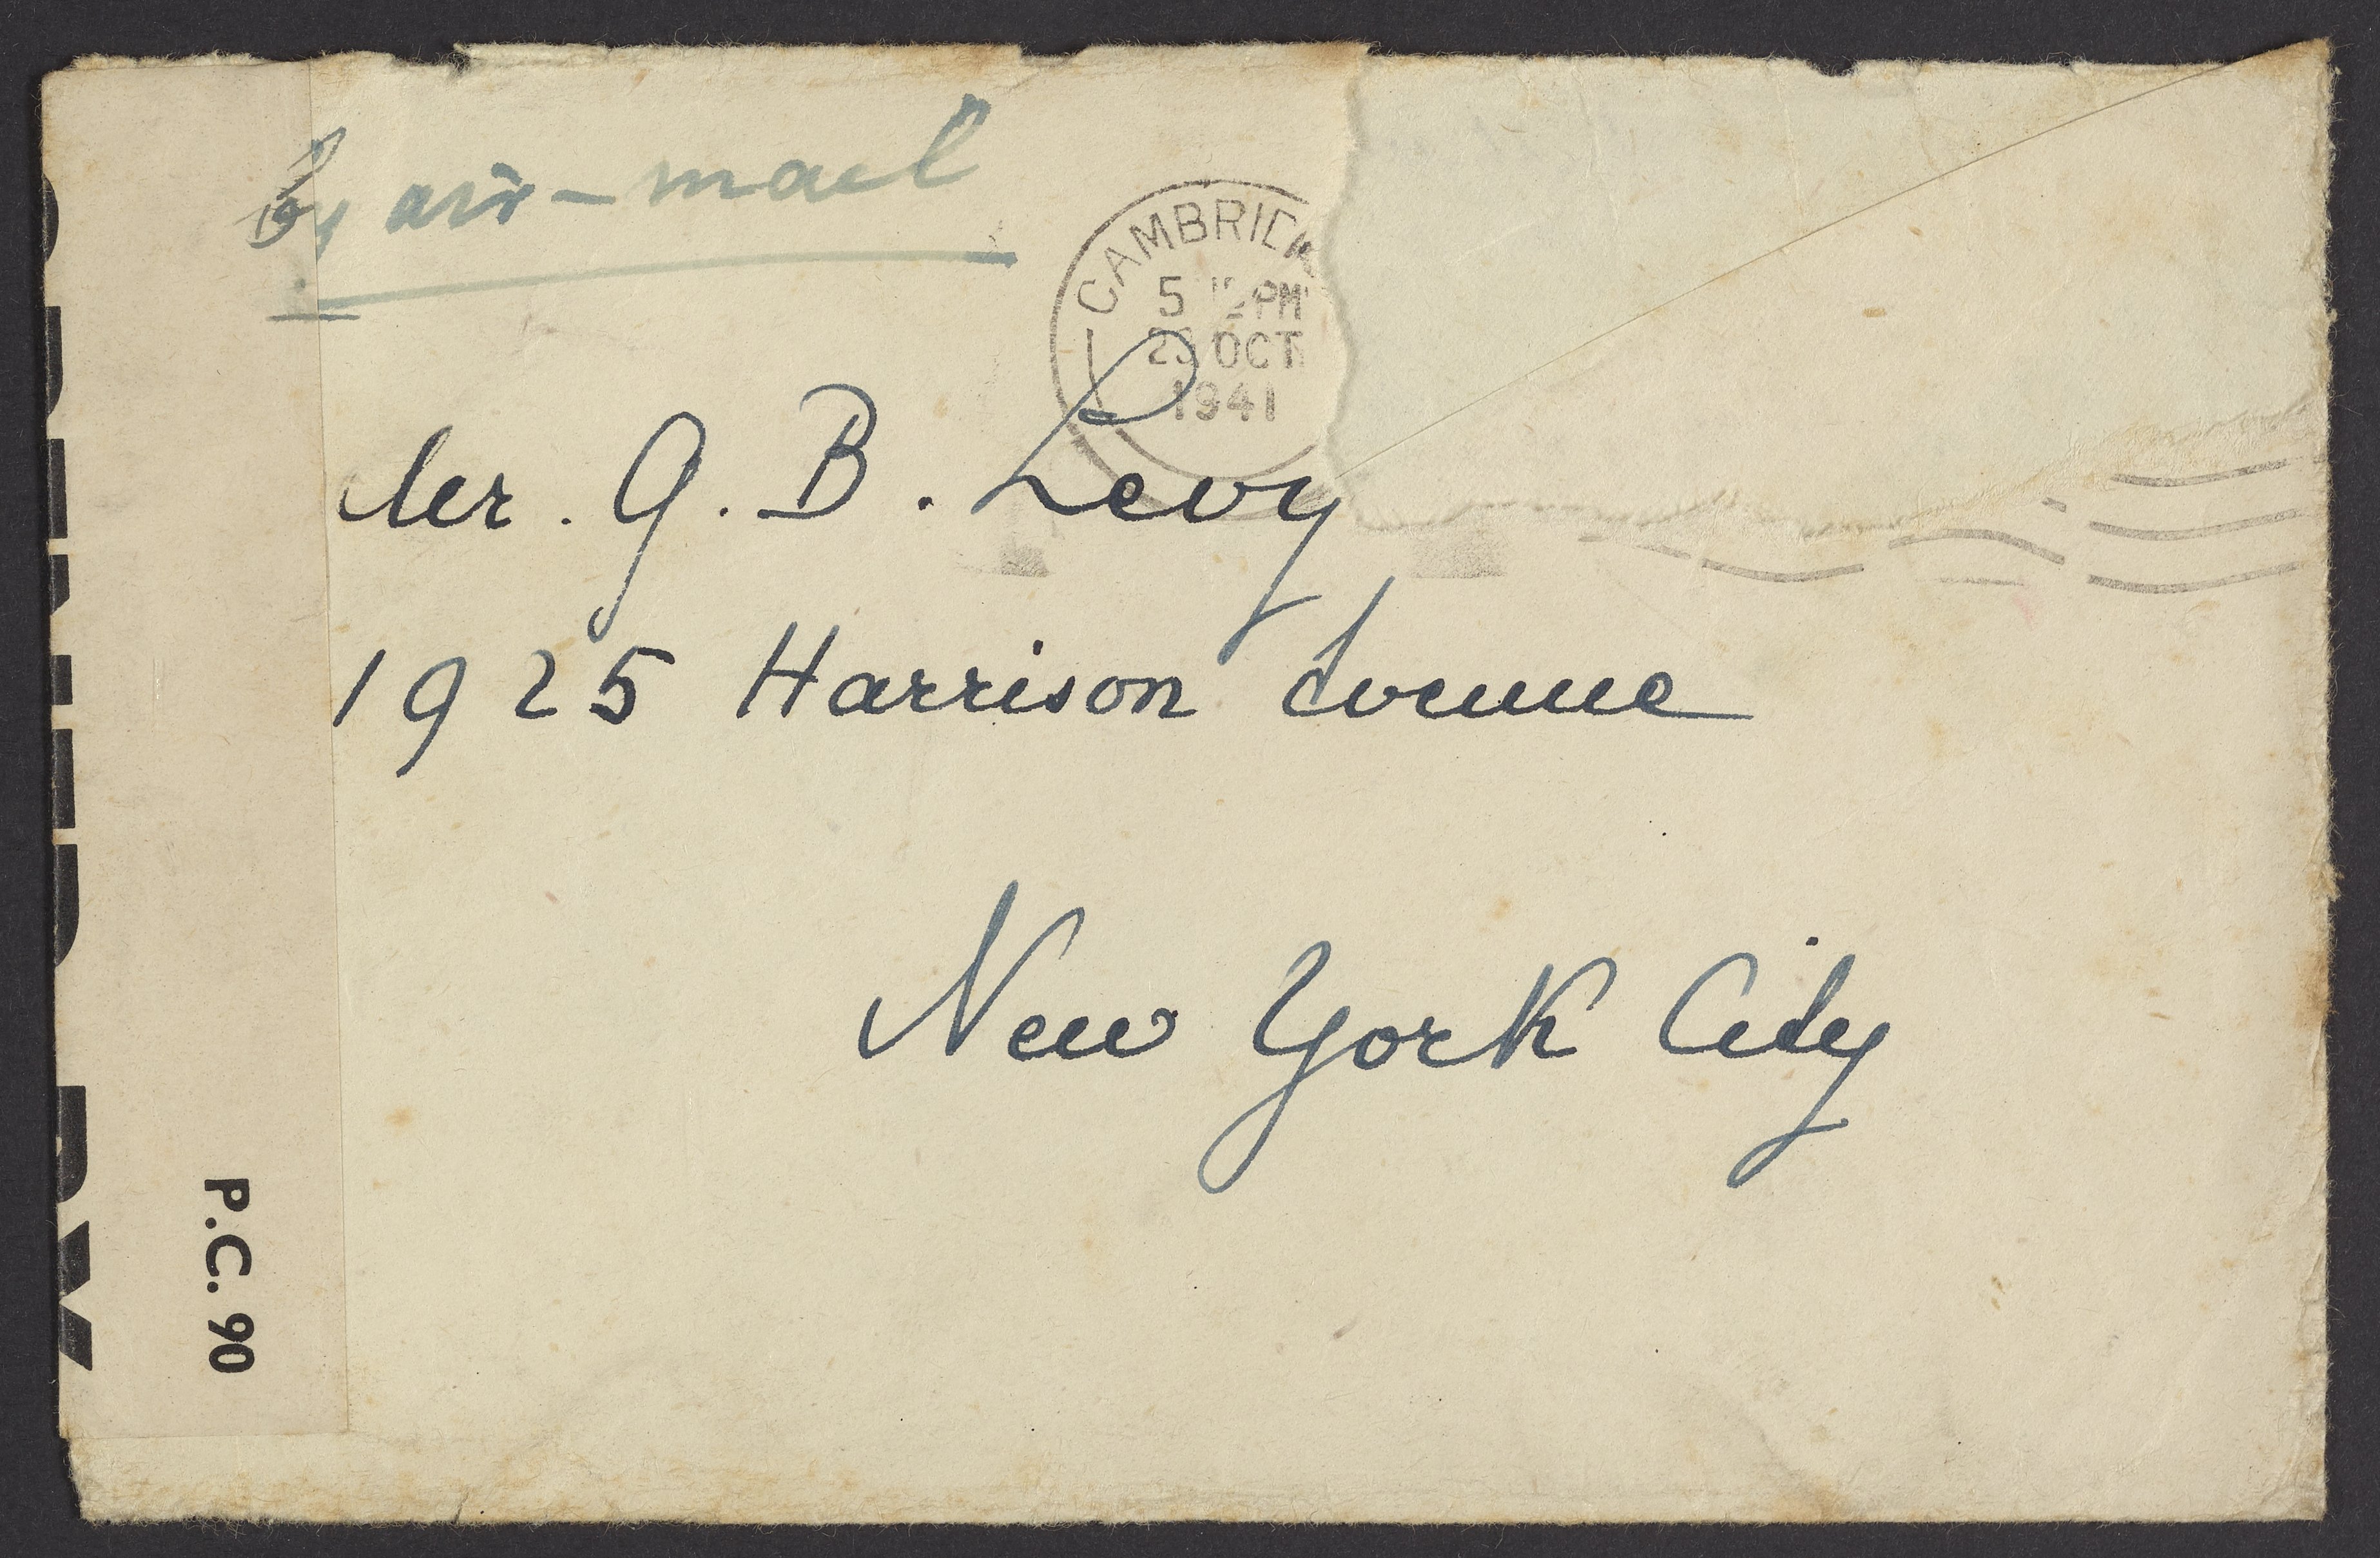 by air-mail
CAMBRID
5 PM
OCT
1941
Mr. G. B. Levy
1925 Harrison Avenue
New York City
P.C. 90